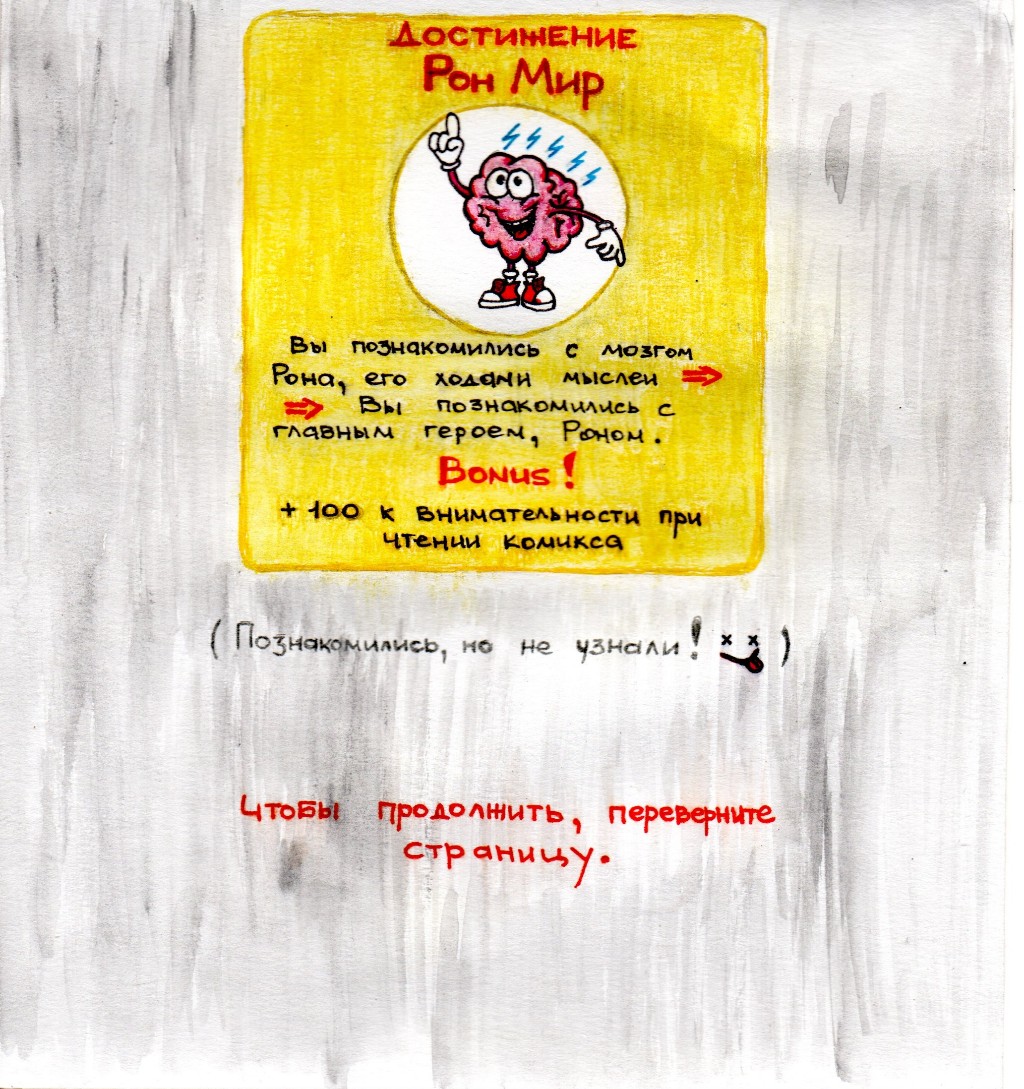 Достижение
Рон Мир
Вы познакомились с мозгом
Рона, его ходами мыслей ⇒
⇒ Вы познакомились с
главным героем, Роном.
Bonus!
+100 к внимательности при
чтении комикса
(Познакомились, но не узнали! )
Чтобы продолжить, переверните
страницу.